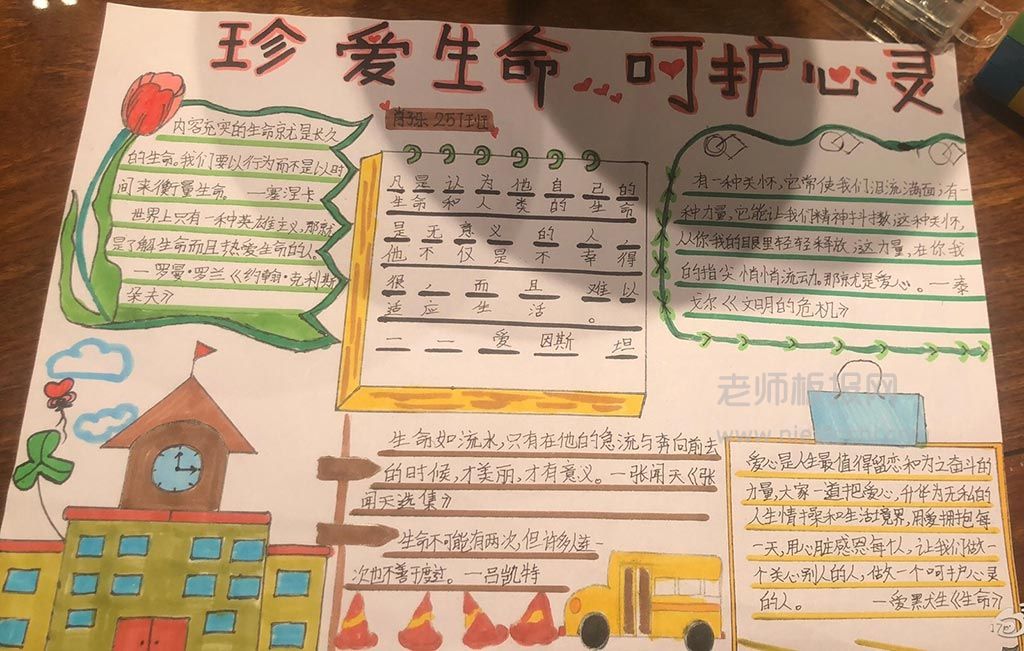 珍爱生命 呵护心灵
内容充实的生命就是长久
的生命。我们要以行为而不是以时
间来衡量生命。 —塞涅卡
世界上只有一种英雄主义,那就
是了解生命而且热爱生命的人。
—罗曼·罗兰《约翰·克利斯
朵夫》
凡是认为他自己的
生命和人类的生命
是无意义的人,
他不仅是不幸得
很,而且难以
适应生活。
——爱因斯坦
有一种关怀,它常使我们泪流满面;有一
种力量,它能让我们精神抖擞;这种关怀,
从你我的眼里轻轻释放;这力量,在你我
的指尖悄悄流动。那就是爱心。—泰
戈尔《文明的危机》
老师板报网
生命如流水,只有在他的急流与奔向前去
的时候,才美丽,才有意义。—张闻天《张
闻天选集》
生命不可能有两次,但许多人连一
次也不善于度过。—吕凯特
爱心是人生最值得留恋和为之奋斗的
力量,大家一道把爱心,升华为无私的
人生情操和生活境界,用爱拥抱每
一天,用心脏感恩每个人,让我们做一
个关心别人的人,做一个呵护心灵
的人。 —爱默生《生命》